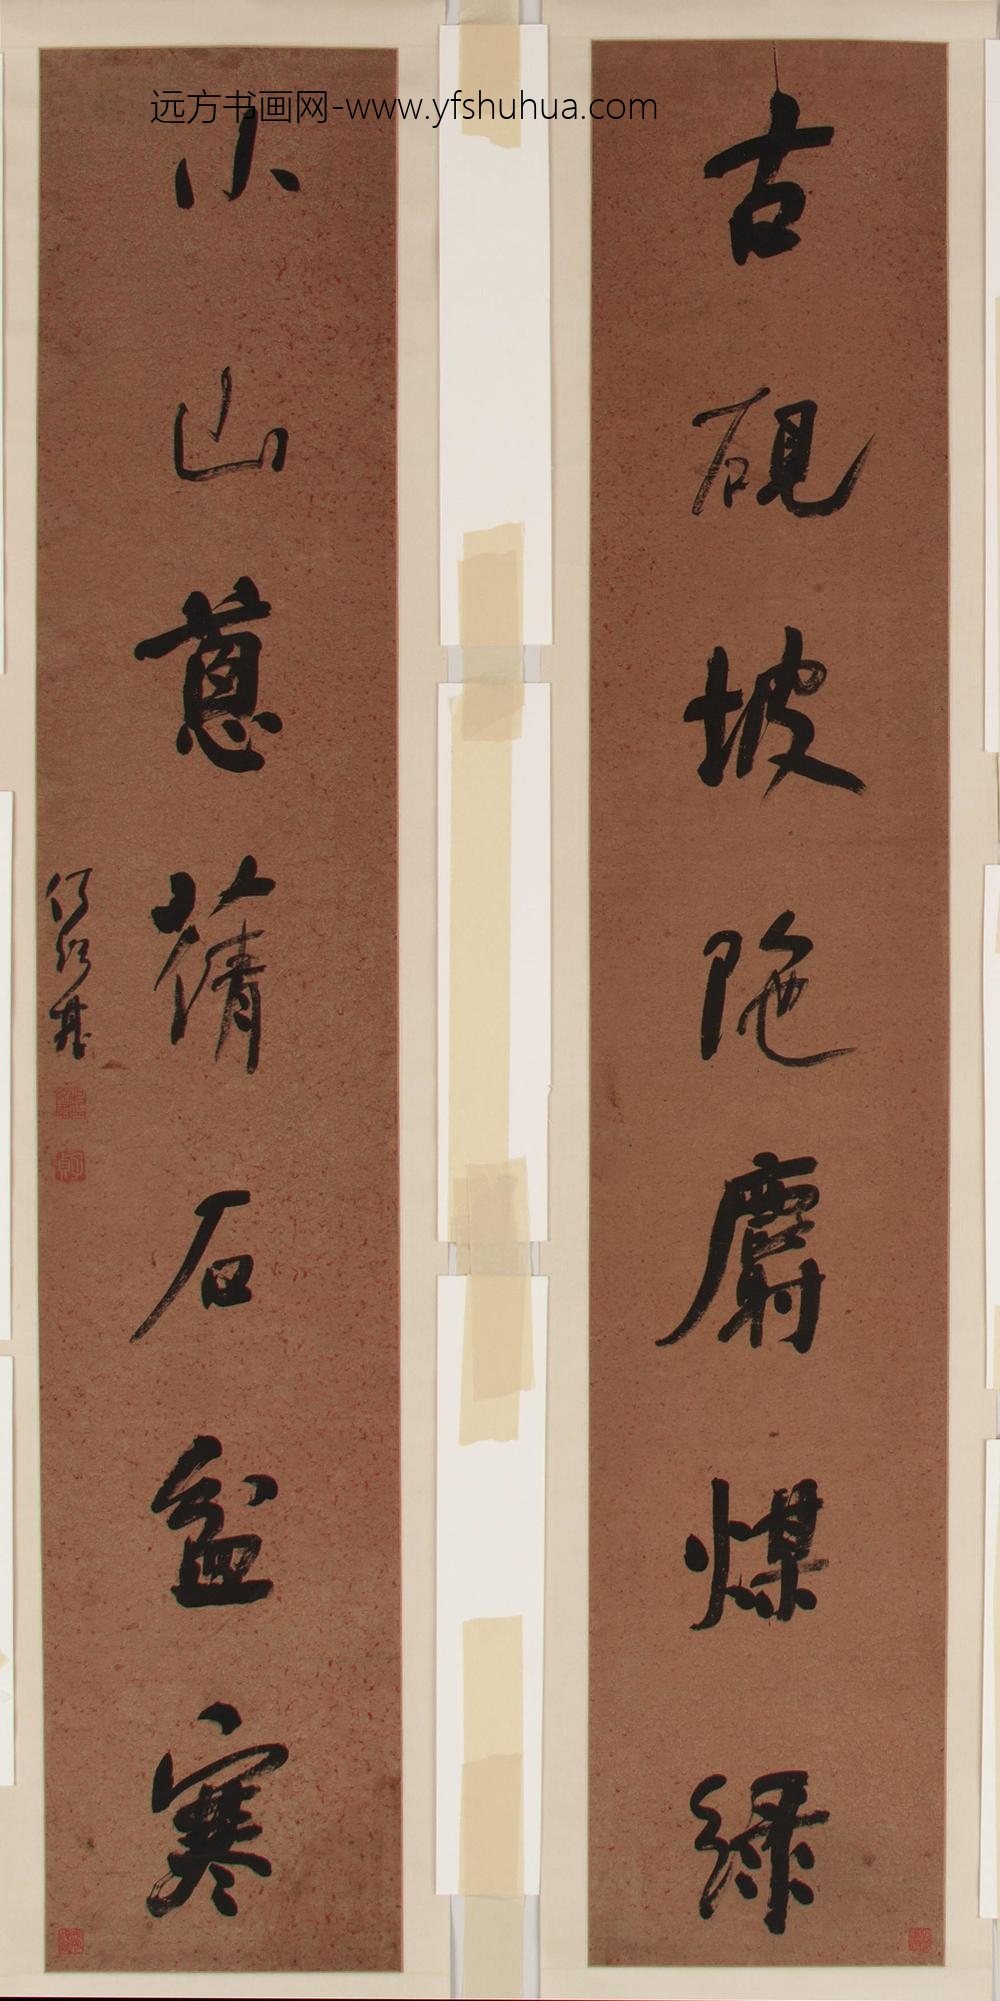 远方书画网-www.yfshuhua.com
古硯坡陁麝煤緑
小山蒽蒨石盆寒
何紹基